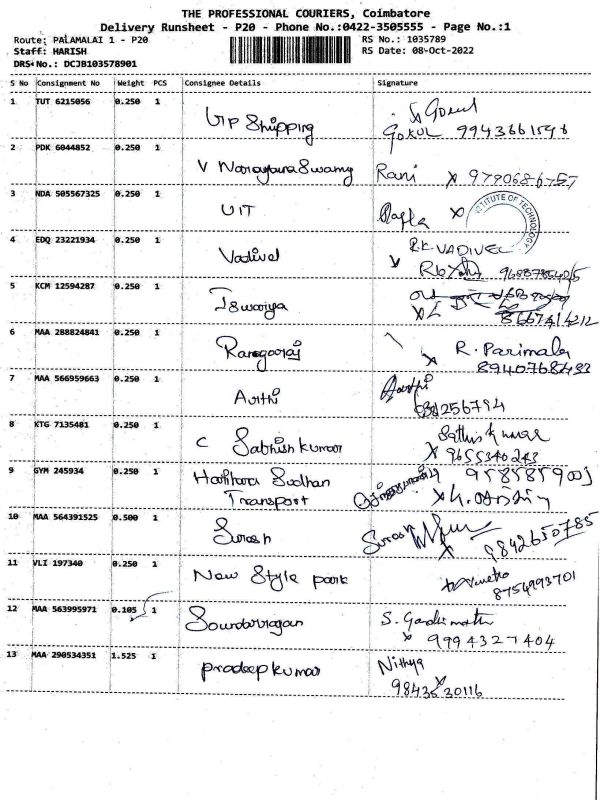 THE PROFESSIONAL COURIERS, Coimbatore
Delivery Runsheet - P20 - Phone No.:0422-3505555 - Page No.:1
Route: PALAMALAI 1 - P20
RS No.: 1035789
Staff: HARISH
RS Date: 08-Oct-2022
DRS No.: DCJB103578901
S No Consignment No Weight PCS Consignee Details Signature
1 TUT 6215056 0.250 1 Gokul
VIP Shipping GOKUL
2 PDK 6044852 0.250 1
V Narayana Swamy Rani x
3 NDA 505567325 0.250 1
UIT x INSTITUTE OF TECHNOLOGY
4 EDQ 23221934 0.250 1 R.K. VADIVEL
Vadivel
5 KCM 12594287 0.250 1
Iswariya
8667414212
6 MAA 288824841 0.250 1
Rangaraj x R. Parimala
8940768433
7 MAA 566959663 0.250 1
Arithi
8 KTG 7135481 0.250 1 Sathis Kumar
C Sabhish kumar x 9655340243
9 GYM 245934 0.250 1 Harihara Sudhan 9585859003
Transport
10 MAA 564391525 0.500 1
Suresh Suresh 9842650785
11 VLI 197340 0.250 1
New Style park 8754993701
12 MAA 563995971 0.105 1
Soundarragan S.
x 9994327404
13 MAA 290534351 1.525 1 Nithya
Pradeep kumar